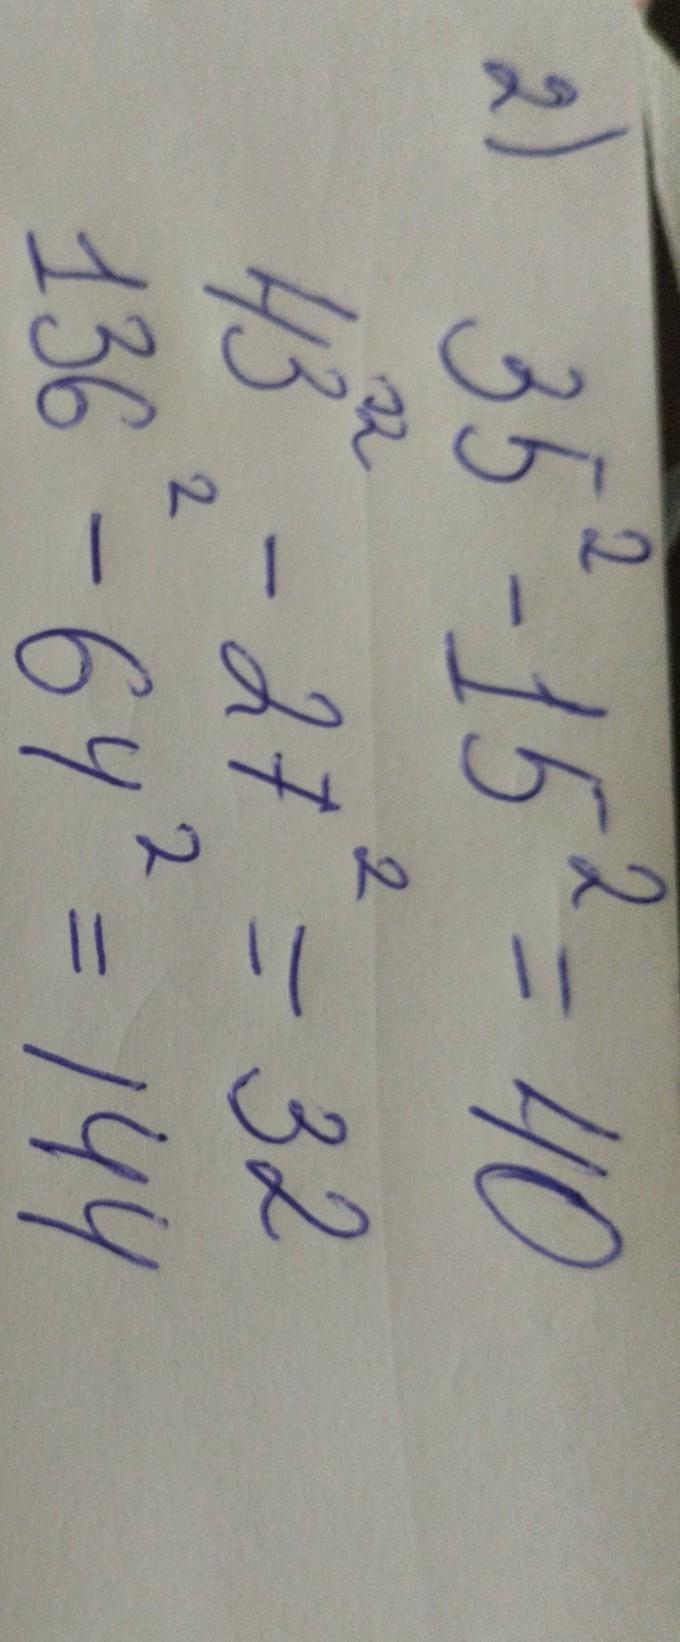 2) 35² - 15² = 40
43² - 27² = 32
136² - 64² = 144